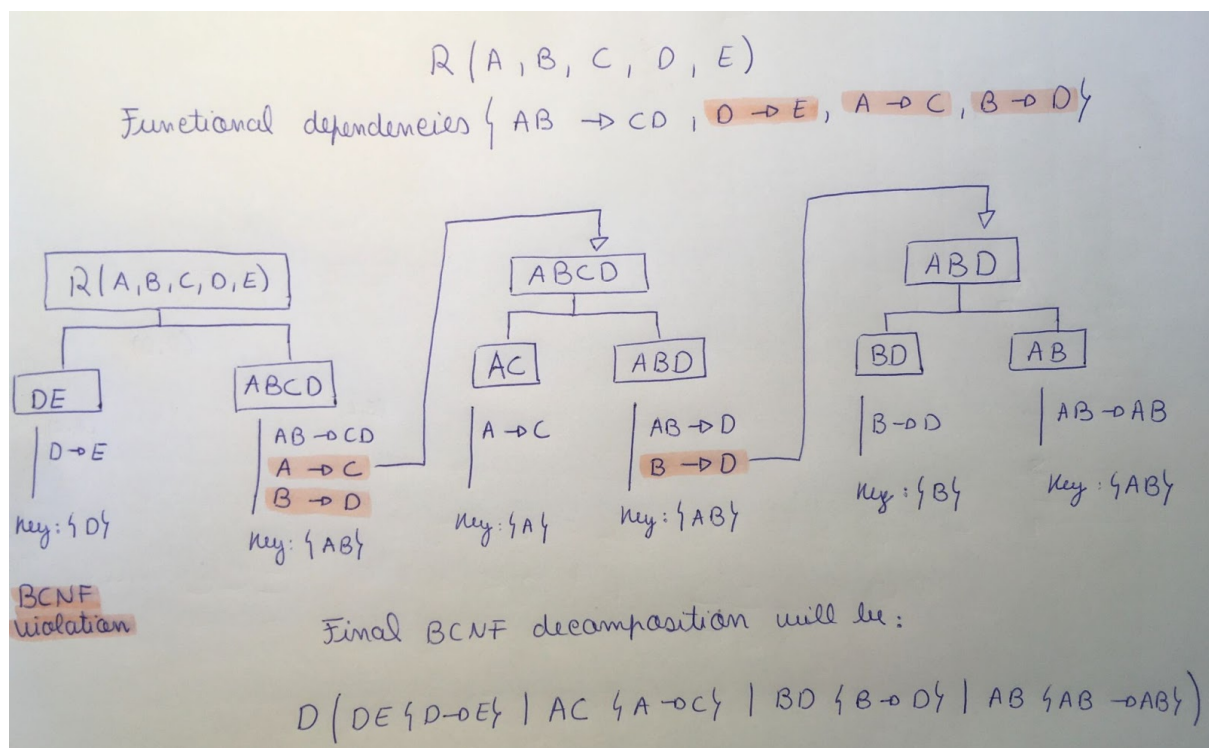 R(A, B, C, D, E)
Functional dependencies { AB → CD, D → E, A → C, B → D}
R(A,B,C,D,E)
DE
D→E
Key: {D}
ABCD
AB→CD
A → C
B → D
Key: {AB}
ABCD
AC
A→C
Key: {A}
ABD
AB→D
B → D
Key: {AB}
ABD
BD
B→D
Key: {B}
AB
AB→AB
Key: {AB}
BCNF
violation
Final BCNF decomposition will be:
D(DE {D→E} | AC {A→C} | BD {B→D} | AB {AB→AB})